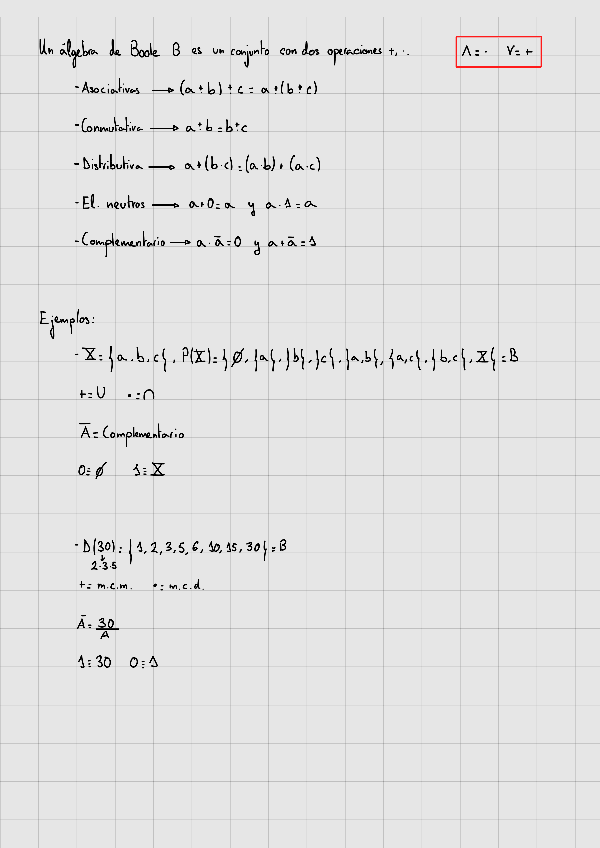 Un álgebra de Boole B es un conjunto con dos operaciones +, ·. Λ = · V = +
- Asociativas → (a + b) + c = a + (b + c)
- Conmutativa → a + b = b + c
- Distributiva → a + (b · c) = (a · b) + (a · c)
- El. neutros → a + 0 = a y a · 1 = a
- Complementario → a · ā = 0 y a + ā = 1
Ejemplos:
- X = {a, b, c}, P(X) = {∅, {a}, {b}, {c}, {a,b}, {a,c}, {b,c}, X} = B
+ = U · = ∩
Ā = Complementario
0 = ∅ 1 = X
- D(30) = {1, 2, 3, 5, 6, 10, 15, 30} = B
2·3·5
+ = m.c.m. · = m.c.d.
Ā = 30
A
1 = 30 0 = 1